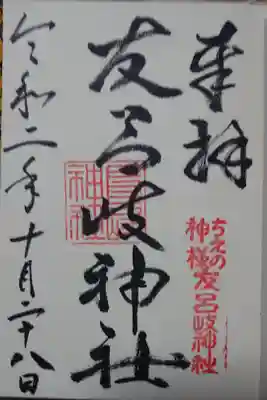 奉拝
ちえの
神様友呂岐神社
友呂岐神社
令和二年十月二十八日